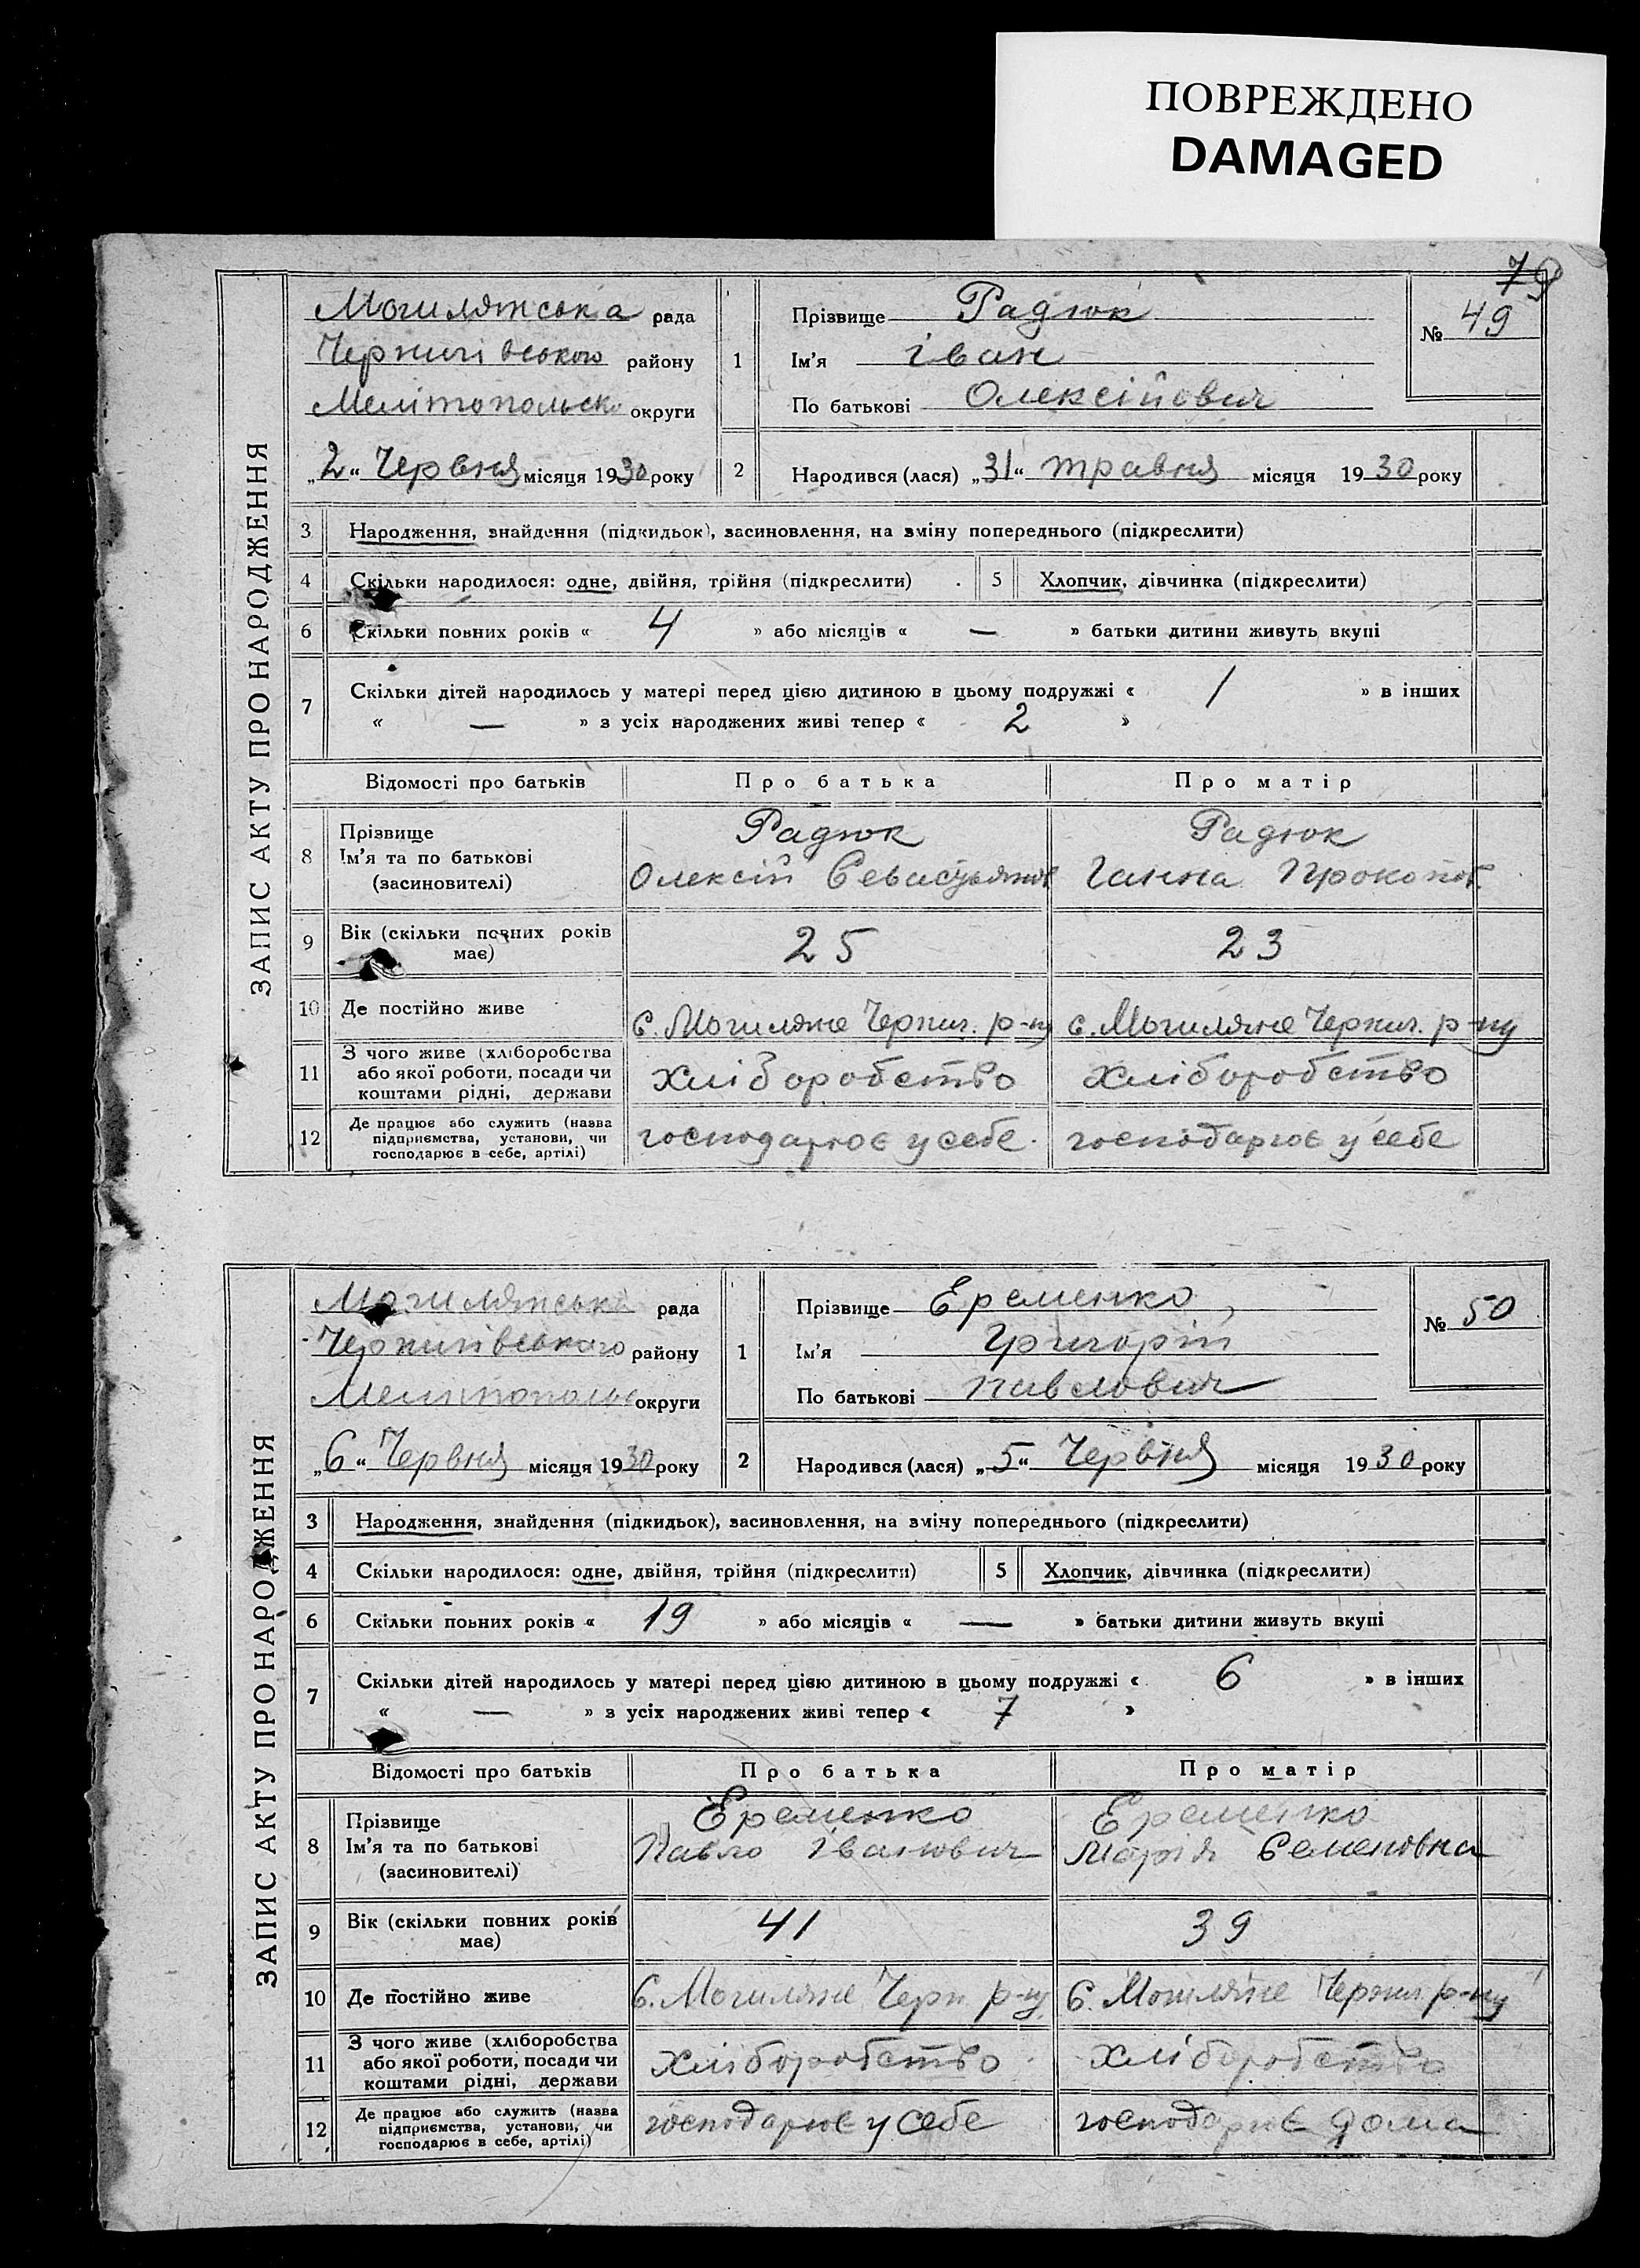 ПОВРЕЖДЕНО
DAMAGED
79
ЗАПИС АКТУ ПРО НАРОДЖЕННЯ
Могилянська рада
Чернигівського району
Мелітопольськ округи
„2“ Червня місяця 1930 року
1 Прізвище Радюк
Ім'я іван
По батькові Олексійович
№ 49
2 Народився (лася) „31“ травня місяця 1930 року
3 Народження, знайдення (підкидьок), засиновлення, на зміну попереднього (підкреслити)
4 Скільки народилося: одне, двійня, трійня (підкреслити) 5 Хлопчик, дівчинка (підкреслити)
6 Скільки повних років « 4 » або місяців « — » батьки дитини живуть вкупі
7 Скільки дітей народилось у матері перед цією дитиною в цьому подружжі « 1 » в інших
« — » з усіх народжених живі тепер « 2 »
Відомості про батьків Про батька Про матір
8 Прізвище Радюк Радюк
Ім'я та по батькові Олексій Севастьянов Ганна Прокопов.
(засиновителі)
9 Вік (скільки повних років має) 25 23
10 Де постійно живе с. Могиляне Черниг. р-ну с. Могиляне Черниг. р-ну
11 З чого живе (хліборобства
або якої роботи, посади чи
коштами рідні, держави хліборобство хліборобство
12 Де працює або служить (назва
підприємства, установи, чи
господарює в себе, артілі) господарює у себе. господарює у себе
ЗАПИС АКТУ ПРО НАРОДЖЕННЯ
Могилянська рада
Чернигівського району
Мелитопольс округи
„6“ Червня місяця 1930 року
1 Прізвище Еременко
Ім'я Григорій
По батькові Павлович
№ 50
2 Народився (лася) „5“ Червня місяця 1930 року
3 Народження, знайдення (підкидьок), засиновлення, на зміну попереднього (підкреслити)
4 Скільки народилося: одне, двійня, трійня (підкреслити) 5 Хлопчик, дівчинка (підкреслити)
6 Скільки повних років « 19 » або місяців « — » батьки дитини живуть вкупі
7 Скільки дітей народилось у матері перед цією дитиною в цьому подружжі « 6 » в інших
« — » з усіх народжених живі тепер « 7 »
Відомості про батьків Про батька Про матір
8 Прізвище Еременко Еременко
Ім'я та по батькові Павло Іванович Марія Семеновна
(засиновителі)
9 Вік (скільки повних років має) 41 39
10 Де постійно живе с. Могиляне Черн. р-ну с. Могиляне Черниг. р-ну
11 З чого живе (хліборобства
або якої роботи, посади чи
коштами рідні, держави хліборобство хліборобство
12 Де працює або служить (назва
підприємства, установи, чи
господарює в себе, артілі) господарює у себе господарює дома